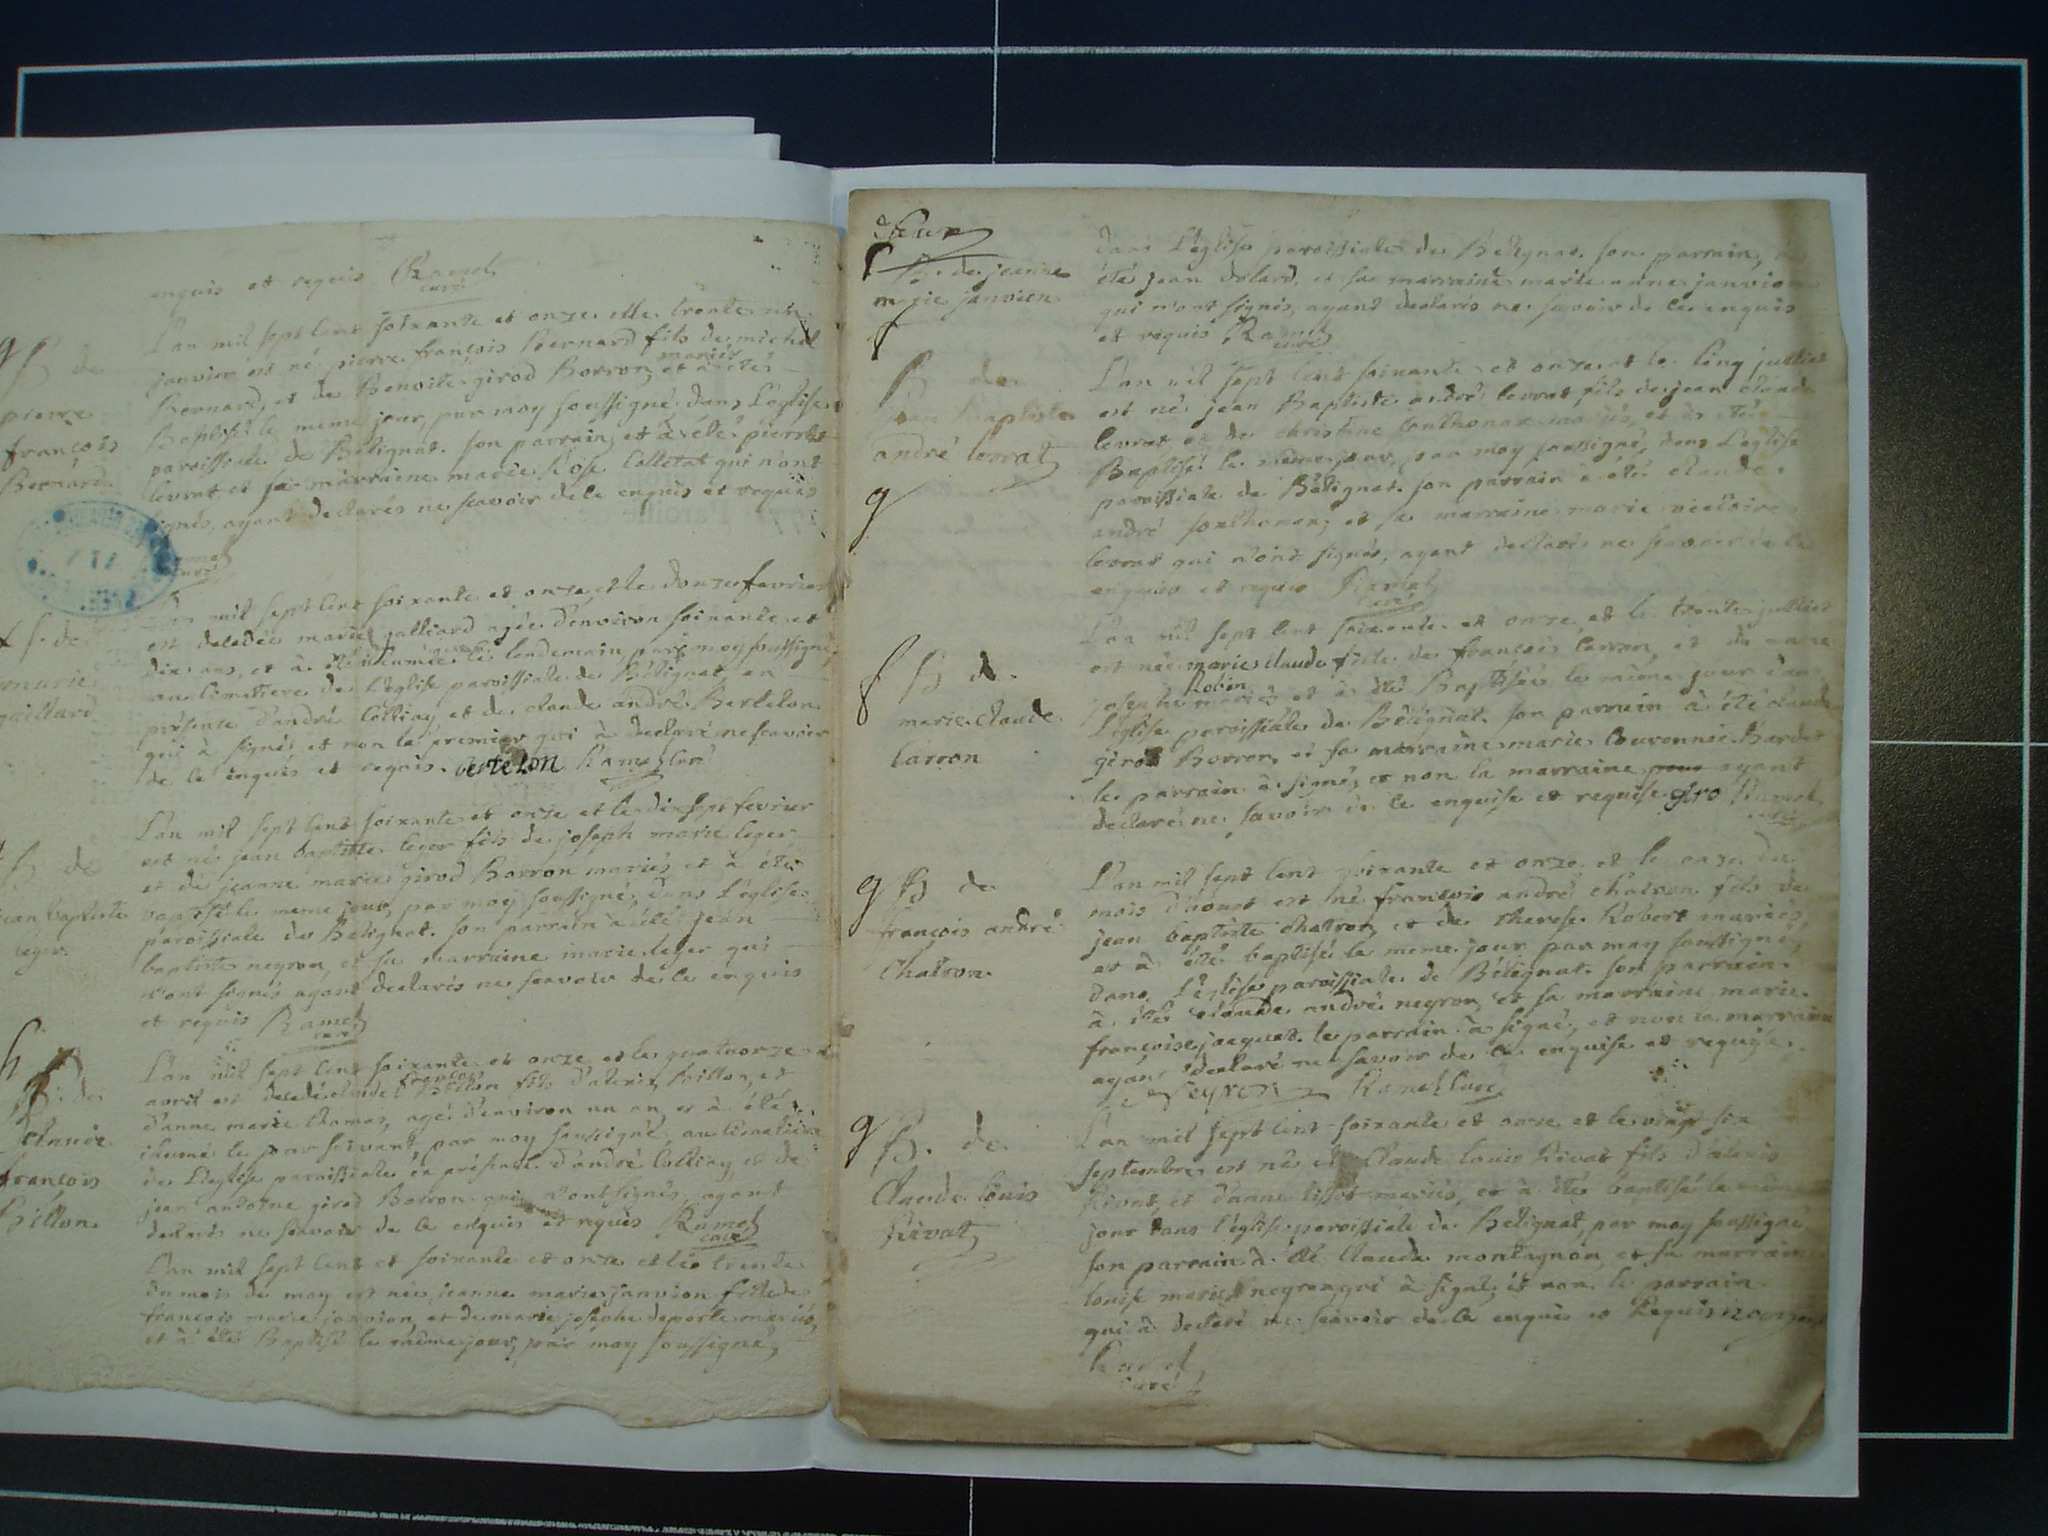 enquis et requis Ramel
curé
g B de
pierre
françois
Bernard
L'an mil sept cent soixante et onze et le trente un
janvier est né pierre françois Bernard fils de michel
Bernard, et de Benoite girod Borron mariés et à été
Baptisé le meme jour, par moy soussigné dans l'eglise
paroissiale de Bélignat. son parrain et à été pierre
levrat et sa marraine marie Rose Colletat qui n'ont
signés, ayant declarés ne scavoir de ce enquis et requis
Ramel
curé
f S. de
marie
gaillard
L'an mil sept cent soixante et onze, et le douze fevrier
est decedée marie galliard agée d'environ soixante et
dix ans, et à été inhumée le lendemain par moy soussigné
au cimetiere de l'eglise paroissiale de Bélignat, en
présence d'andré Colliay et de claude andré Bertelon
qui à signé, et non le premier qui à declaré ne scavoir
de ce enquis et requis. bertelon Ramel curé
B de
jean baptiste
leger
L'an mil sept cent soixante et onze et le dix sept fevrier
est né jean baptiste leger fils de joseph marie leger
et de jeanne marie girod Borron mariés et à été
baptisé le meme jour, par moy soussigné, dans l'église
paroissiale de Belignat. son parrain à été jean
baptiste negron, et sa marraine marie leger qui
n'ont signés ayant declarés ne scavoir de ce enquis
et requis Ramel
curé
S. de
claude
françois
Billon
L'an mil sept cent soixante et onze et le quatuorze
avril est decedé claude françois Billon fils d'alexis Billon, et
d'anne marie agé d'environ un an, et à été
inhumé le jour suivant par moy soussigné au cimetiere
de l'eglise paroissiale en présence d'andré Colliay et de
jean antoine girod Borron qui n'ont signés, ayant
declarés ne scavoir de ce enquis et requis Ramel
curé
L'an mil sept cent et soixante et onze et le trente
du mois de may est née jeanne marie janvion fille de
françois marie janvion, et de marie josephe deporte mariés,
et à été Baptisé le même jour, par moy soussigné,
deux
B. de jeanne
m rie janvion
f
dans l'église paroissiale de Belignat. son parrain, à
été jean et sa marraine marie anne janvion
qui n'ont signés, ayant declarés ne savoir de ce enquis
et requis Ramel
curé
B de
jean Baptiste
andré levrat
g
L'an mil sept cent soixante et onze et le cinq juillet
est né jean Baptiste andré levrat fils de jean claude
levrat et de christine sonthonax mariés, et à été
Baptisé le même jour, par moy soussigné, dans l'eglise
paroissiale de Bélignat. son parrain à été claude
andré sonthonax, et sa marraine marie victoire
levrat qui n'ont signés, ayant declarés ne scavoir de ce
enquis et requis Ramel
curé
f B de
marie claude
Carron
L'an mil sept cent soixante et onze, et le trente juillet
est née marie claude fille de françois Carron, et de marie
josephe Robin mariés et à été Baptisée le même jour dans
l'église paroissiale de Bélignat. son parrain à été claude
girod Borron, et sa marraine marie Couronnée Bardet
le parrain à signé, et non la marraine ayant
declaré ne savoir de ce enquise et requise. giro Ramel
curé
g B de
françois andré
Chatron
L'an mil sept cent soixante et onze et le onze du
mois d'aoust est né françois andré chatron fils de
jean baptiste chatron, et de therese Robert mariés,
et à été baptisé le meme jour par moy soussigné,
dans l'église paroissiale de Bélignat. son parrain
à été claude andré negron, et sa marraine marie
françoise jacquet. le parrain à signé, et non la marraine
ayant declaré ne savoir de ce enquise et requise
neyron Ramel curé
g B. de
Claude louis
Rivat
L'an mil sept cent soixante et onze et le vingt six
septembre est né Claude louis Rivat fils d'alexis
Rivat, et d'anne mariés, et à été baptisé le même
jour dans l'église paroissiale de Belignat, par moy soussigné
son parrain à été Claude montagnon et sa marraine
louise marie negron qui à signé, et non le parrain
qui à declaré ne scavoir de ce enquis et Requis
Ramel
curé